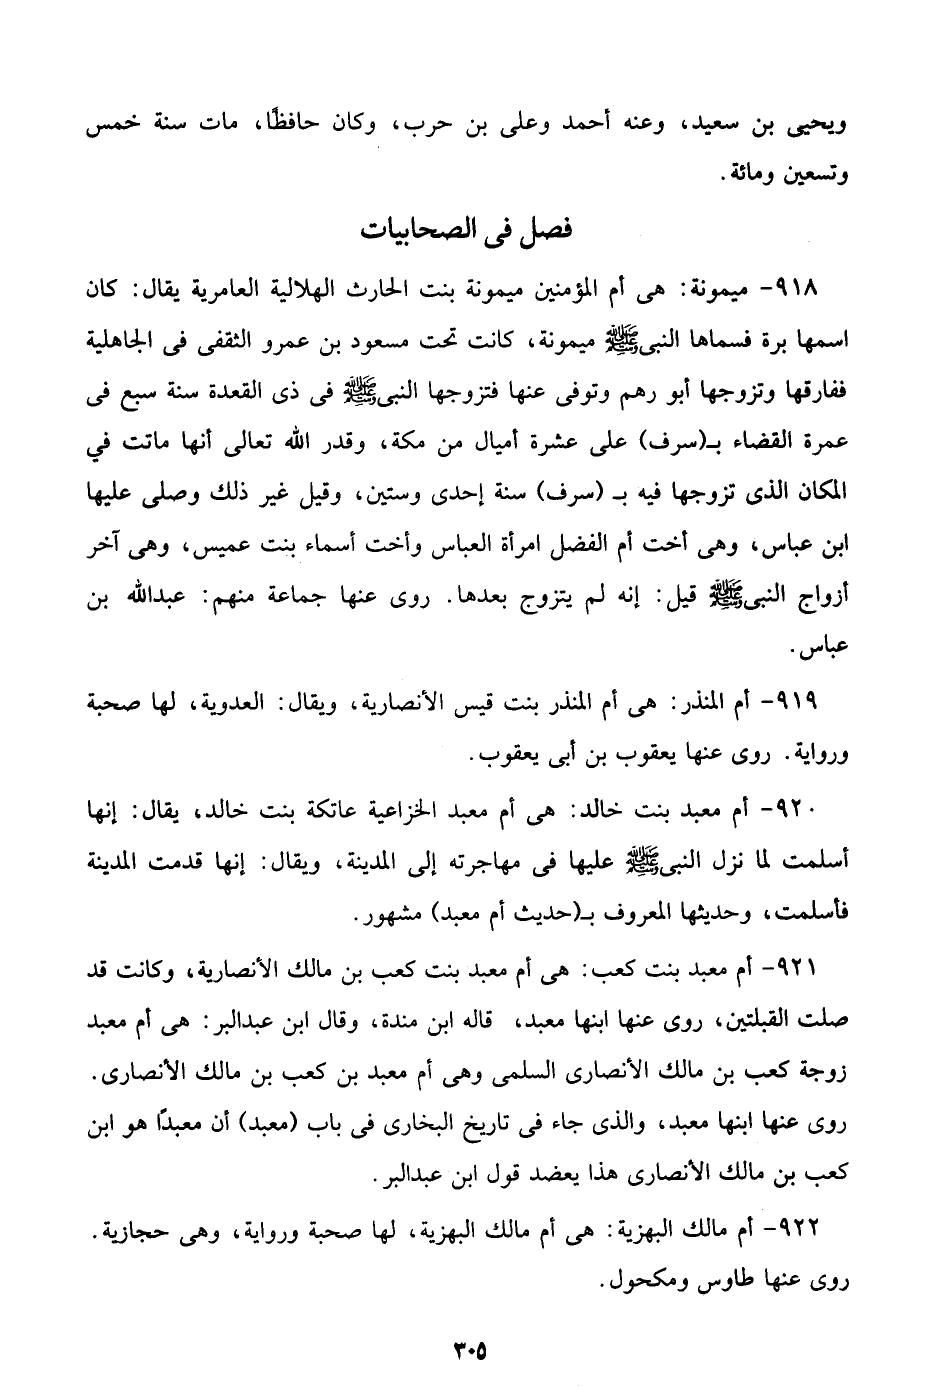 ويحيى بن سعيد، وعنه أحمد وعلى بن حرب، وكان حافظًا، مات سنة خمس
وتسعين ومائة.
فصل فى الصحابيات
٩١٨- ميمونة: هى أم المؤمنين ميمونة بنت الحارث الهلالية العامرية يقال: كان
اسمها برة فسماها النبىﷺ ميمونة، كانت تحت مسعود بن عمرو الثقفى فى الجاهلية
ففارقها وتزوجها أبو رهم وتوفى عنها فتزوجها النبىﷺ فى ذى القعدة سنة سبع فى
عمرة القضاء بـ(سرف) على عشرة أميال من مكة، وقدر الله تعالى أنها ماتت في
المكان الذى تزوجها فيه بـ (سرف) سنة إحدى وستين، وقيل غير ذلك وصلى عليها
ابن عباس، وهى أخت أم الفضل امرأة العباس وأخت أسماء بنت عميس، وهى آخر
أزواج النبىﷺ قيل: إنه لم يتزوج بعدها. روى عنها جماعة منهم: عبدالله بن
عباس.
٩١٩- أم المنذر: هى أم المنذر بنت قيس الأنصارية، ويقال: العدوية، لها صحبة
ورواية. روى عنها يعقوب بن أبى يعقوب.
٩٢٠- أم معبد بنت خالد: هى أم معبد الخزاعية عاتكة بنت خالد، يقال: إنها
أسلمت لما نزل النبىﷺ عليها فى مهاجرته إلى المدينة، ويقال: إنها قدمت المدينة
فأسلمت، وحديثها المعروف بـ(حديث أم معبد) مشهور.
٩٢١- أم معبد بنت كعب: هى أم معبد بنت كعب بن مالك الأنصارية، وكانت قد
صلت القبلتين، روى عنها ابنها معبد، قاله ابن مندة، وقال ابن عبدالبر: هى أم معبد
زوجة كعب بن مالك الأنصارى السلمى وهى أم معبد بن كعب بن مالك الأنصارى.
روى عنها ابنها معبد، والذى جاء فى تاريخ البخارى فى باب (معبد) أن معبدًا هو ابن
كعب بن مالك الأنصارى هذا يعضد قول ابن عبدالبر.
٩٢٢- أم مالك البهزية: هى أم مالك البهزية، لها صحبة ورواية، وهى حجازية.
روى عنها طاوس ومكحول.
٣٠٥